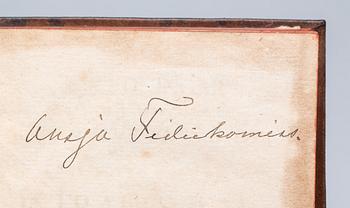 Ansjö Fideikomiss.